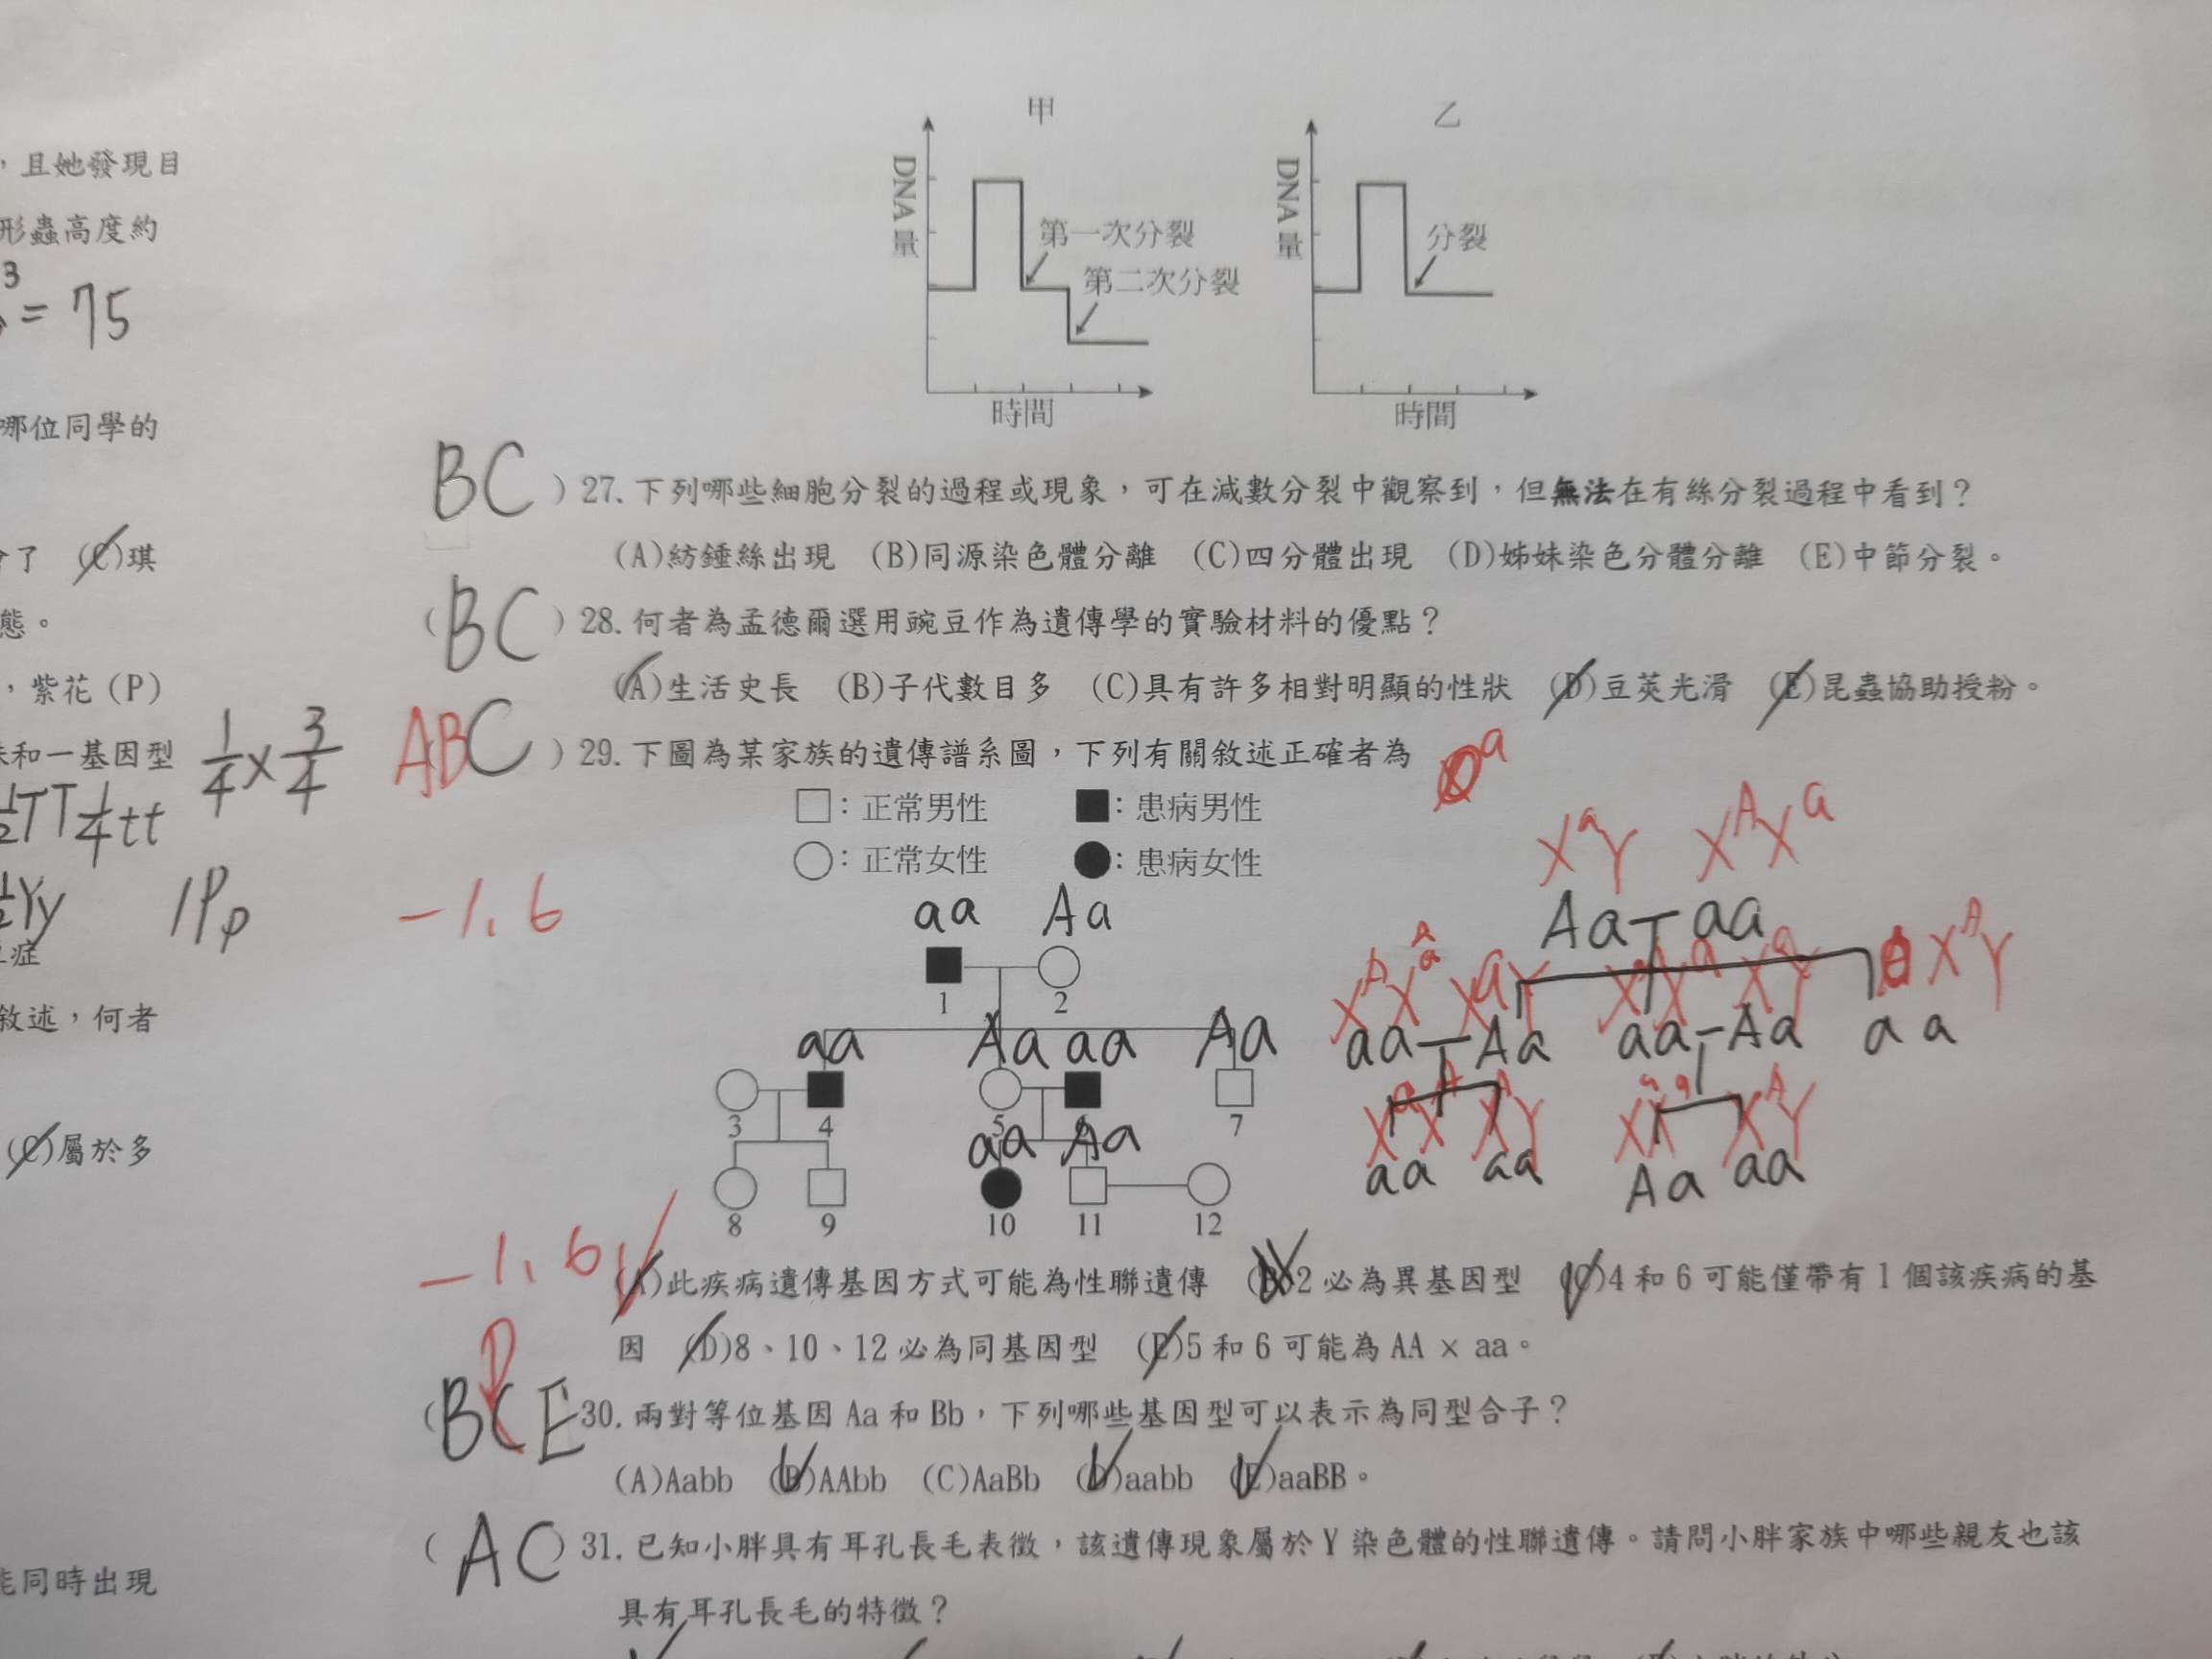 甲
乙
DNA量
第一次分裂
第二次分裂
時間
DNA量
分裂
時間
，且她發現目
形蟲高度約
3
= 75
哪位同學的
(C)琪
態。
，紫花(P)
和一基因型
1/4 × 3/4
TT 1/4 tt
Yy 1Pp
症
敘述，何者
(C)屬於多
能同時出現
BC )27.下列哪些細胞分裂的過程或現象，可在減數分裂中觀察到，但無法在有絲分裂過程中看到？
(A)紡錘絲出現 (B)同源染色體分離 (C)四分體出現 (D)姊妹染色分體分離 (E)中節分裂。
( BC )28.何者為孟德爾選用豌豆作為遺傳學的實驗材料的優點？
(A)生活史長 (B)子代數目多 (C)具有許多相對明顯的性狀 (D)豆莢光滑 (E)昆蟲協助授粉。
ABC )29.下圖為某家族的遺傳譜系圖，下列有關敘述正確者為
□：正常男性 ■：患病男性
○：正常女性 ●：患病女性
-1.6
XaY XAXa
aa Aa
Aa aa
1 2
XAY
aa Aa aa Aa
aa Aa aa Aa aa
3 4 5 7
aa Aa
aa aa Aa aa
8 9 10 11 12
-1.6
(A)此疾病遺傳基因方式可能為性聯遺傳 (B)2必為異基因型 (C)4和6可能僅帶有1個該疾病的基
因 (D)8、10、12必為同基因型 (E)5和6可能為AA × aa。
( BCE D 30.兩對等位基因Aa和Bb，下列哪些基因型可以表示為同型合子？
(A)Aabb (B)AAbb (C)AaBb (D)aabb (E)aaBB。
( AC )31.已知小胖具有耳孔長毛表徵，該遺傳現象屬於Y染色體的性聯遺傳。請問小胖家族中哪些親友也該
具有耳孔長毛的特徵？